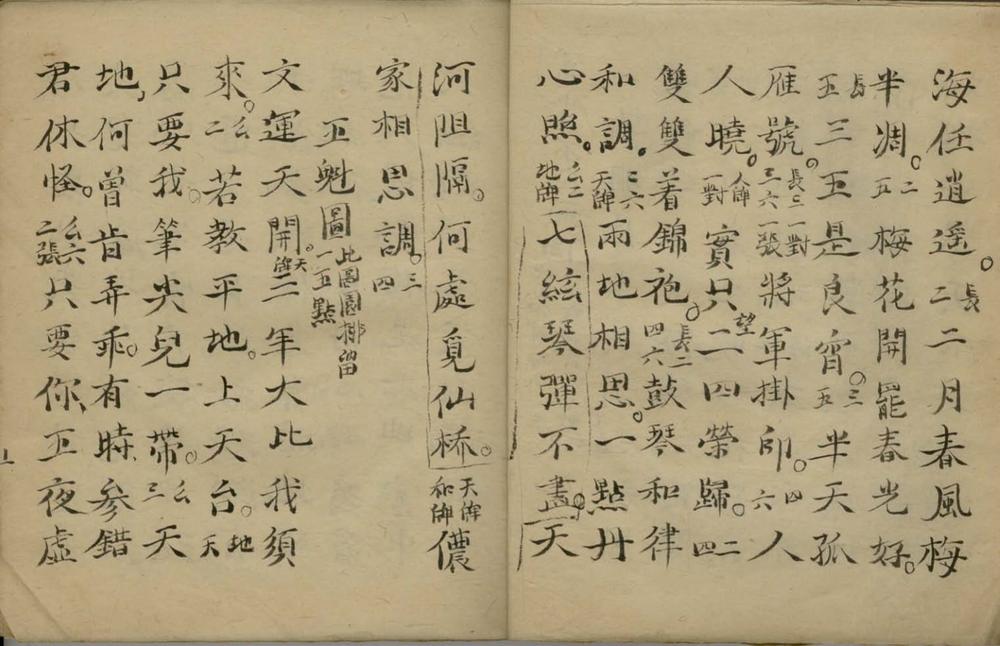 海任逍遥。二長二月春風梅
半凋。五二梅花開罷春光好。
五長三五是良宵。五三半天孤
雁號。三六長三一張一對將軍掛印。六四人
人曉。一對人牌實只望一二四榮歸。四二
雙雙着錦袍。四六長二鼓琴和律
和調。天牌二六兩地相思。一點丹
心照。地牌幺二七絃琴彈不盡。天
河阻隔。何處覓仙桥。和牌天牌儂
家相思調。四三
五魁圖 此圖園排留一五點
文運天開。天牌三年大比我須
來。二幺若教平地。上天台。天地
只要我。筆尖兒一帶。三幺天
地，何曾肯弄乖。有時參錯
君休怪。二張幺六只要你，五夜虛